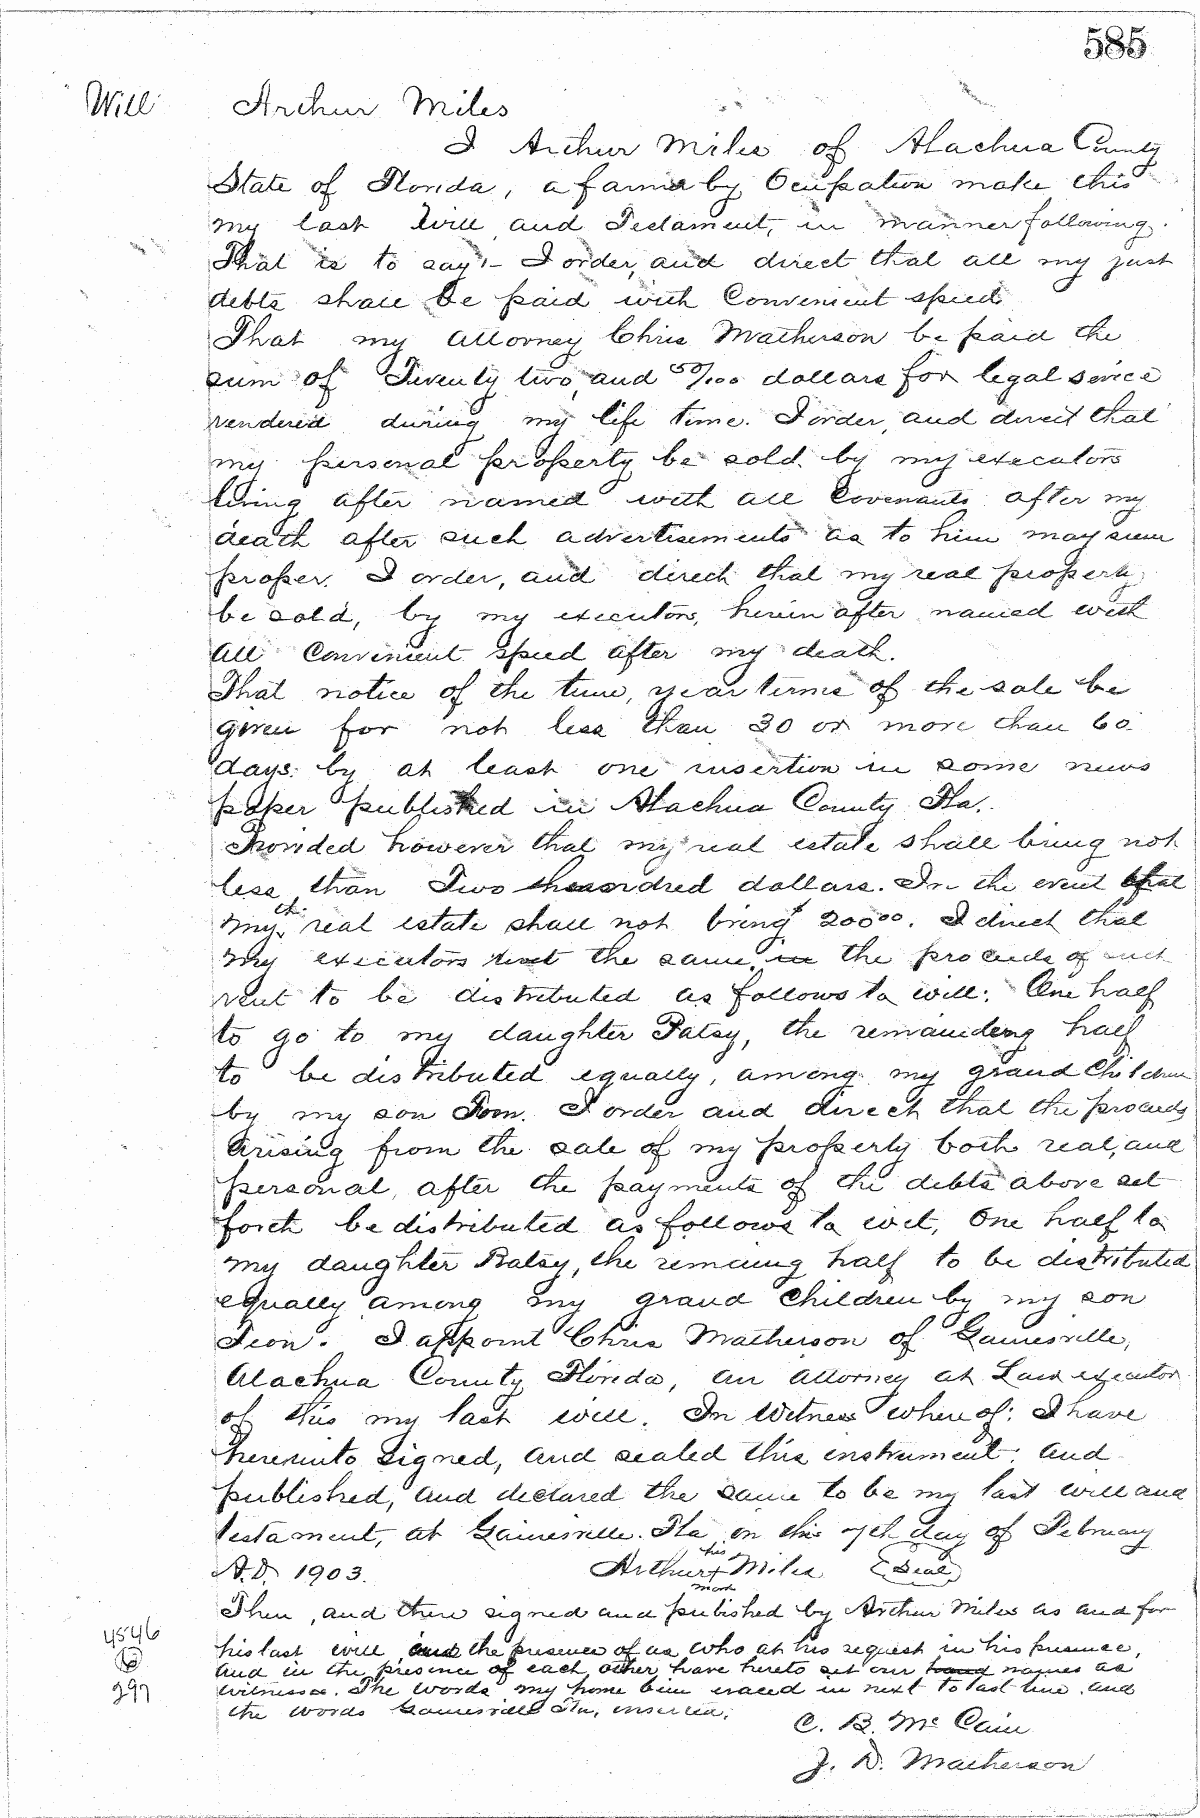 585
Will Arthur Miles
I Arthur Miles of Alachua County
State of Florida, a farmer by Ocupation make this
my last Will, and Testament, in manner following.
That is to say:- I order, and direct that all my just
debts shall be paid with Convenient speed.
That my Attorney Chris Matherson be paid the
sum of Twenty two, and 50/100 dollars for legal service
rendered during my life time. I order, and direct that
my personal property be sold by my executors
after named with all Covenants after my
death after such advertisements as to him may seem
proper. I order, and direct that my real property
be sold, by my executors, herein after named with
all Convenient speed after my death.
That notice of the time, year terms of the sale be
given for not less than 30 or more than 60
days by at least one insertion in some news
paper published in Alachua County Fla.
Provided however that my real estate shall bring not
less than Two hundred dollars. In the event that
my real estate shall not bring $ 200 00. I direct that
my executors the same, in the proceeds of such
rent to be distributed as follows to will: One half
to go to my daughter Patsy, the remaindeng half
to be distributed equally, among my grand Children
by my son. I order and direct that the proceeds
Arising from the sale of my property both real, and
personal, after the payments of the debts above set
forth be distributed as follows to wit, One half to
my daughter Patsy, the remaing half to be distributed
equally among my grand Children by my son
I appoint Chris Matherson of Gainesville,
Alachua County Florida, an attorney at Law executor
of this my last will. In Witness where of: I have
hereunto signed, and sealed this instrument: and
published, and declared the same to be my last will and
testament, at Gainesville. Fla on this 7th day of February
A.D. 1903. Arthur his + mark Miles (Seal)
Then, and there signed and published by Arthur Miles as and for
4546
his last will, the presence of us, who at his request in his presence,
6
and in the presence of each other have hereto set our hand names as
297
witnesses. The words my home been eraced in next to last line, and
the words Gainesville Fla, inserted;
C. B. McCain
J. D. Matherson